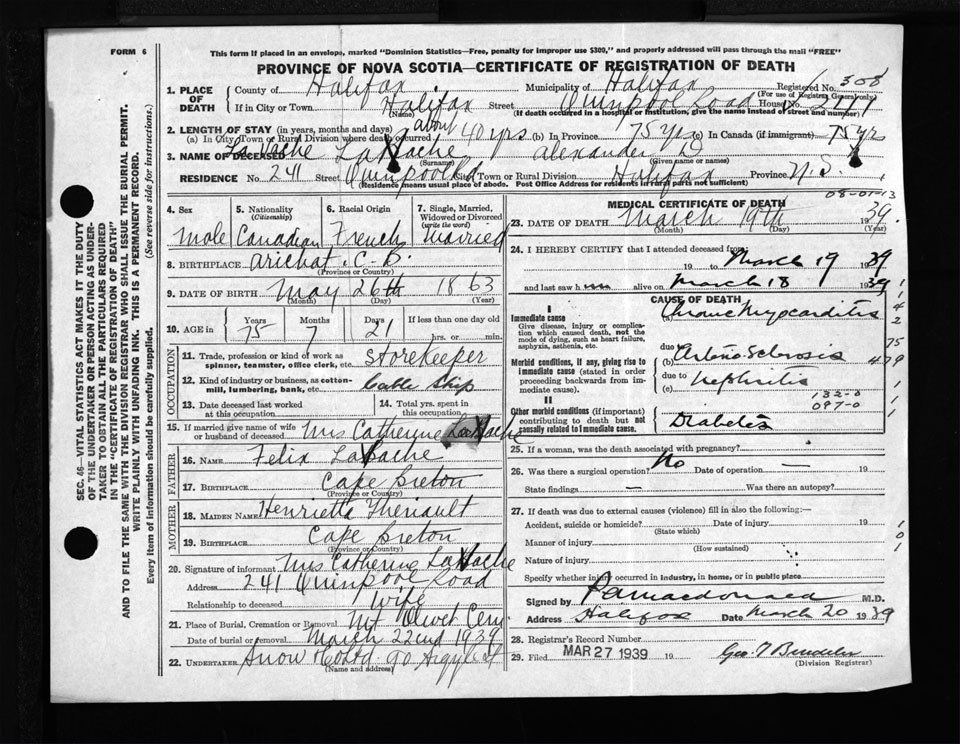 FORM 6
This form if placed in an envelope, marked "Dominion Statistics—Free, penalty for improper use $300," and properly addressed will pass through the mail "FREE"
PROVINCE OF NOVA SCOTIA—CERTIFICATE OF REGISTRATION OF DEATH
1. PLACE OF DEATH
County of Halifax Municipality of Halifax Registered No. 308
(For use of Registrar General only)
If in City or Town Halifax (Name) Street Quinpool Road House No. 241
(If death occurred in a hospital or institution, give the name instead of street and number)
2. LENGTH OF STAY (in years, months and days)
(a) In City, Town or Rural Division where death occurred about 40 yrs (b) In Province 75 yrs (c) In Canada (if immigrant) 75 yrs
3. NAME OF DECEASED LaVache LaVache (Surname) Alexander D (Given name or names)
RESIDENCE No. 241 Street Quinpool Rd City, Town or Rural Division Halifax Province N.S.
(Residence means usual place of abode. Post Office Address for residents in rural parts not sufficient)
4. Sex Male
5. Nationality (Citizenship) Canadian
6. Racial Origin French
7. Single, Married, Widowed or Divorced (write the word) Married
8. BIRTHPLACE Arichat C.B.
(Province or Country)
9. DATE OF BIRTH May 26th 1863
(Month) (Day) (Year)
10. AGE in Years 75 Months 7 Days 21 If less than one day old
hrs. or min.
OCCUPATION
11. Trade, profession or kind of work as spinner, teamster, office clerk, etc. Storekeeper
12. Kind of industry or business, as cotton-mill, lumbering, bank, etc. Cable Ship
13. Date deceased last worked at this occupation
14. Total yrs. spent in this occupation
15. If married give name of wife or husband of deceased Mrs Catherine LaVache
FATHER
16. NAME Felix LaVache
17. BIRTHPLACE Cape Breton
(Province or Country)
MOTHER
18. MAIDEN NAME Henrietta Theriault
19. BIRTHPLACE Cape Breton
(Province or Country)
20. Signature of informant Mrs Catherine LaVache
Address 241 Quinpool Road
Relationship to deceased Wife
21. Place of Burial, Cremation or Removal Mt Olivet Cem
Date of burial or removal March 22nd 1939
22. UNDERTAKER Snow & Co Ltd 90 Argyle St
MEDICAL CERTIFICATE OF DEATH
08-01-13
23. DATE OF DEATH March 19th 1939
(Month) (Day) (Year)
24. I HEREBY CERTIFY that I attended deceased from
19 to March 19 1939
and last saw him alive on March 18 1939
CAUSE OF DEATH
I
Immediate cause
Give disease, injury or complication which caused death, not the mode of dying, such as heart failure, asphyxia, asthenia, etc.
Chronic Myocarditis
due to
Morbid conditions, if any, giving rise to immediate cause (stated in order proceeding backwards from immediate cause).
(b) Arterio Sclerosis
due to
(c) Nephritis
132-0
097-0
II
Other morbid conditions (if important) contributing to death but not causally related to immediate cause.
Diabetes
25. If a woman, was the death associated with pregnancy?
26. Was there a surgical operation? No Date of operation — 19
State findings — Was there an autopsy?
27. If death was due to external causes (violence) fill in also the following:—
Accident, suicide or homicide? Date of injury 19
(State which)
Manner of injury
(How sustained)
Nature of injury
Specify whether injury occurred in industry, in home, or in public place
Signed by M.D.
Address Halifax Date March 20 1939
28. Registrar's Record Number
29. Filed MAR 27 1939 19
(Division Registrar)
SEC. 46—VITAL STATISTICS ACT MAKES IT THE DUTY OF THE UNDERTAKER OR PERSON ACTING AS UNDERTAKER TO OBTAIN ALL THE PARTICULARS REQUIRED IN THE "CERTIFICATE OF REGISTRATION OF DEATH" AND TO FILE THE SAME WITH THE DIVISION REGISTRAR WHO SHALL ISSUE THE BURIAL PERMIT.
WRITE PLAINLY WITH UNFADING INK. THIS IS A PERMANENT RECORD.
Every item of information should be carefully supplied. (See reverse side for instructions.)